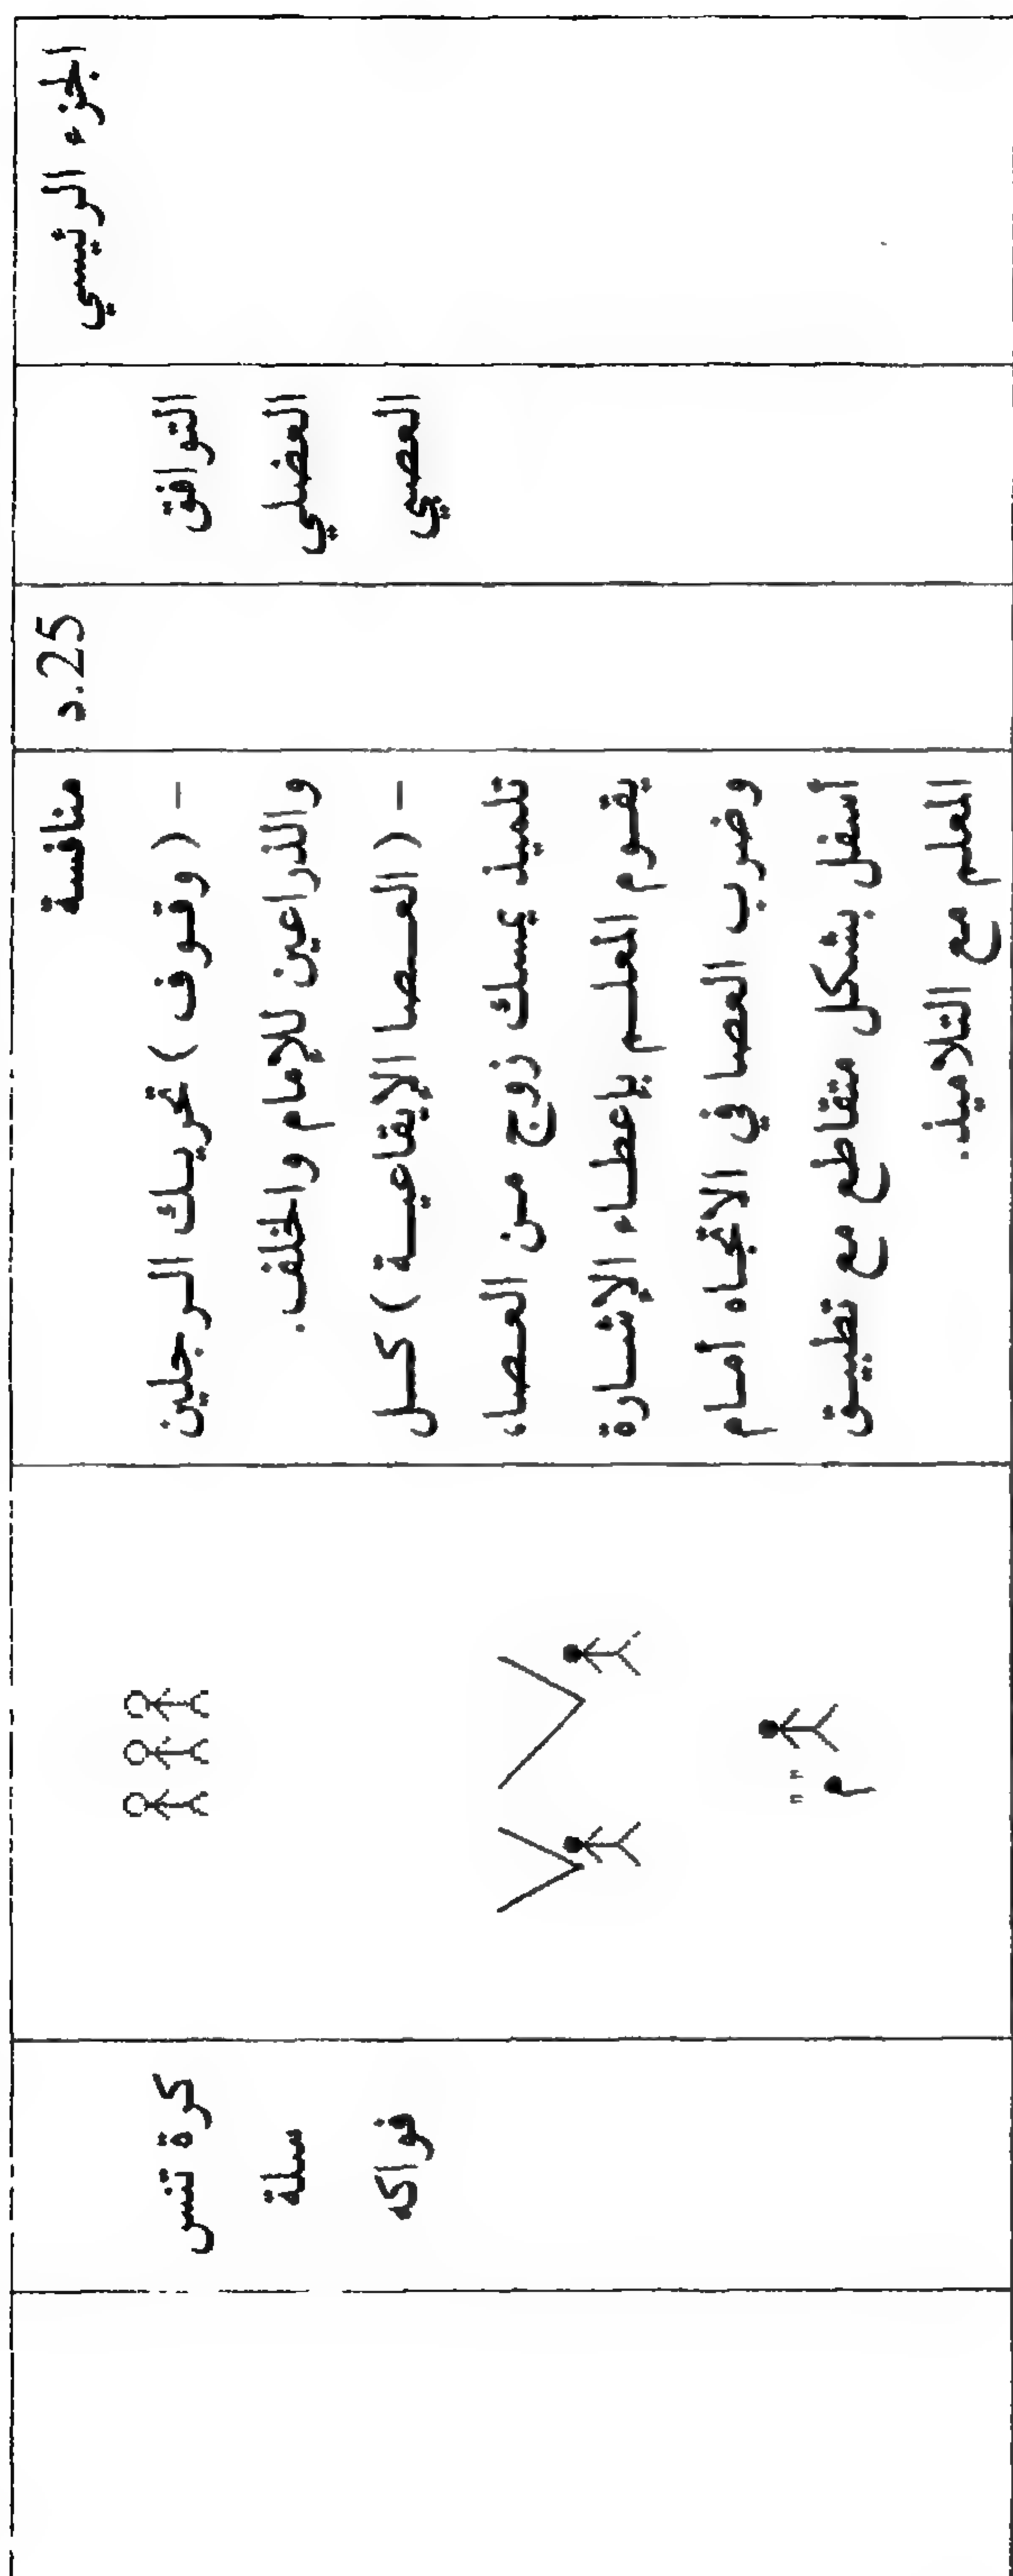 الجزء الرئيسي
التوافق
العضلي
العصبي
25.د
منافسة
- ( وقوف ) تحريك الرجلين
والذراعين للإمام والخلف.
- ( العصا الإيقاعية ) كل
تلميذ يمسك زوج من العصا،
يقوم المعلم بإعطاء الإشارة
وضرب العصا في الاتجاه أمام
أسفل بشكل متقاطع مع تطبيق
المعلم مع التلاميذ.
"م"
كرة تنس
سلة
فواكه